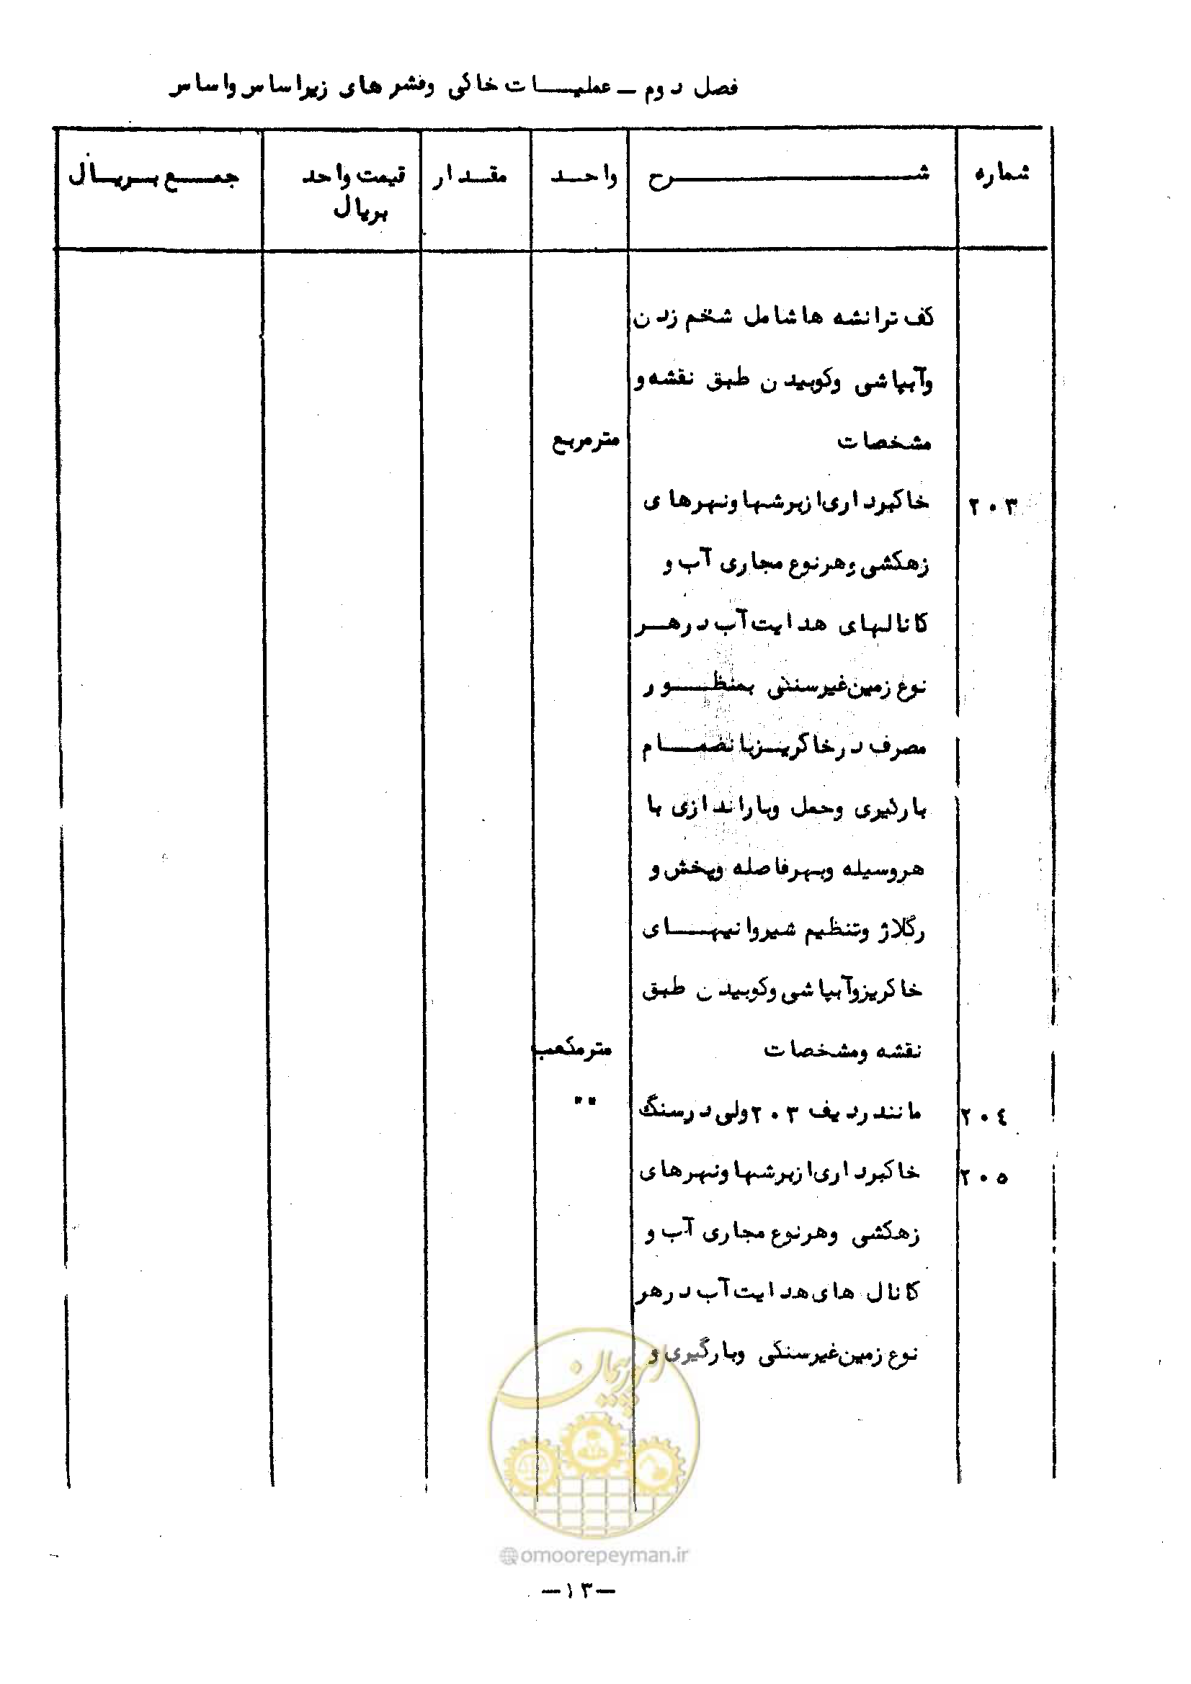 فصل دوم ـ عملیـــات خاکی وقشرهای زیراساس واساس
شماره شــــــــرح واحــد مقــدار قیمت واحد جمــع بــریــال
بریال
کف ترانشه ها شامل شخم زدن
وآبپاشی وکوبیدن طبق نقشه و
مشخصات مترمربع
۲۰۳ خاکبرداری از برشها ونهرهای
زهکشی وهرنوع مجاری آب و
کانالهای هدایت آب درهــر
نوع زمین غیرسنگی بمنظــور
مصرف درخاکریــز بانضمــام
بارگیری وحمل وباراندازی با
هروسیله وبهرفاصله وپخش و
رگلاژ وتنظیم شیروانیهــای
خاکریز وآبپاشی وکوبیدن طبق
نقشه ومشخصات مترمکعب
۲۰۴ مانند ردیف ۲۰۳ ولی درسنگ ״
۲۰۵ خاکبرداری از برشها ونهرهای
زهکشی وهرنوع مجاری آب و
کانال های هدایت آب درهر
نوع زمین غیرسنگی وبارگیری و
امور پیمان
@omoorepeyman.ir
—۱۳—